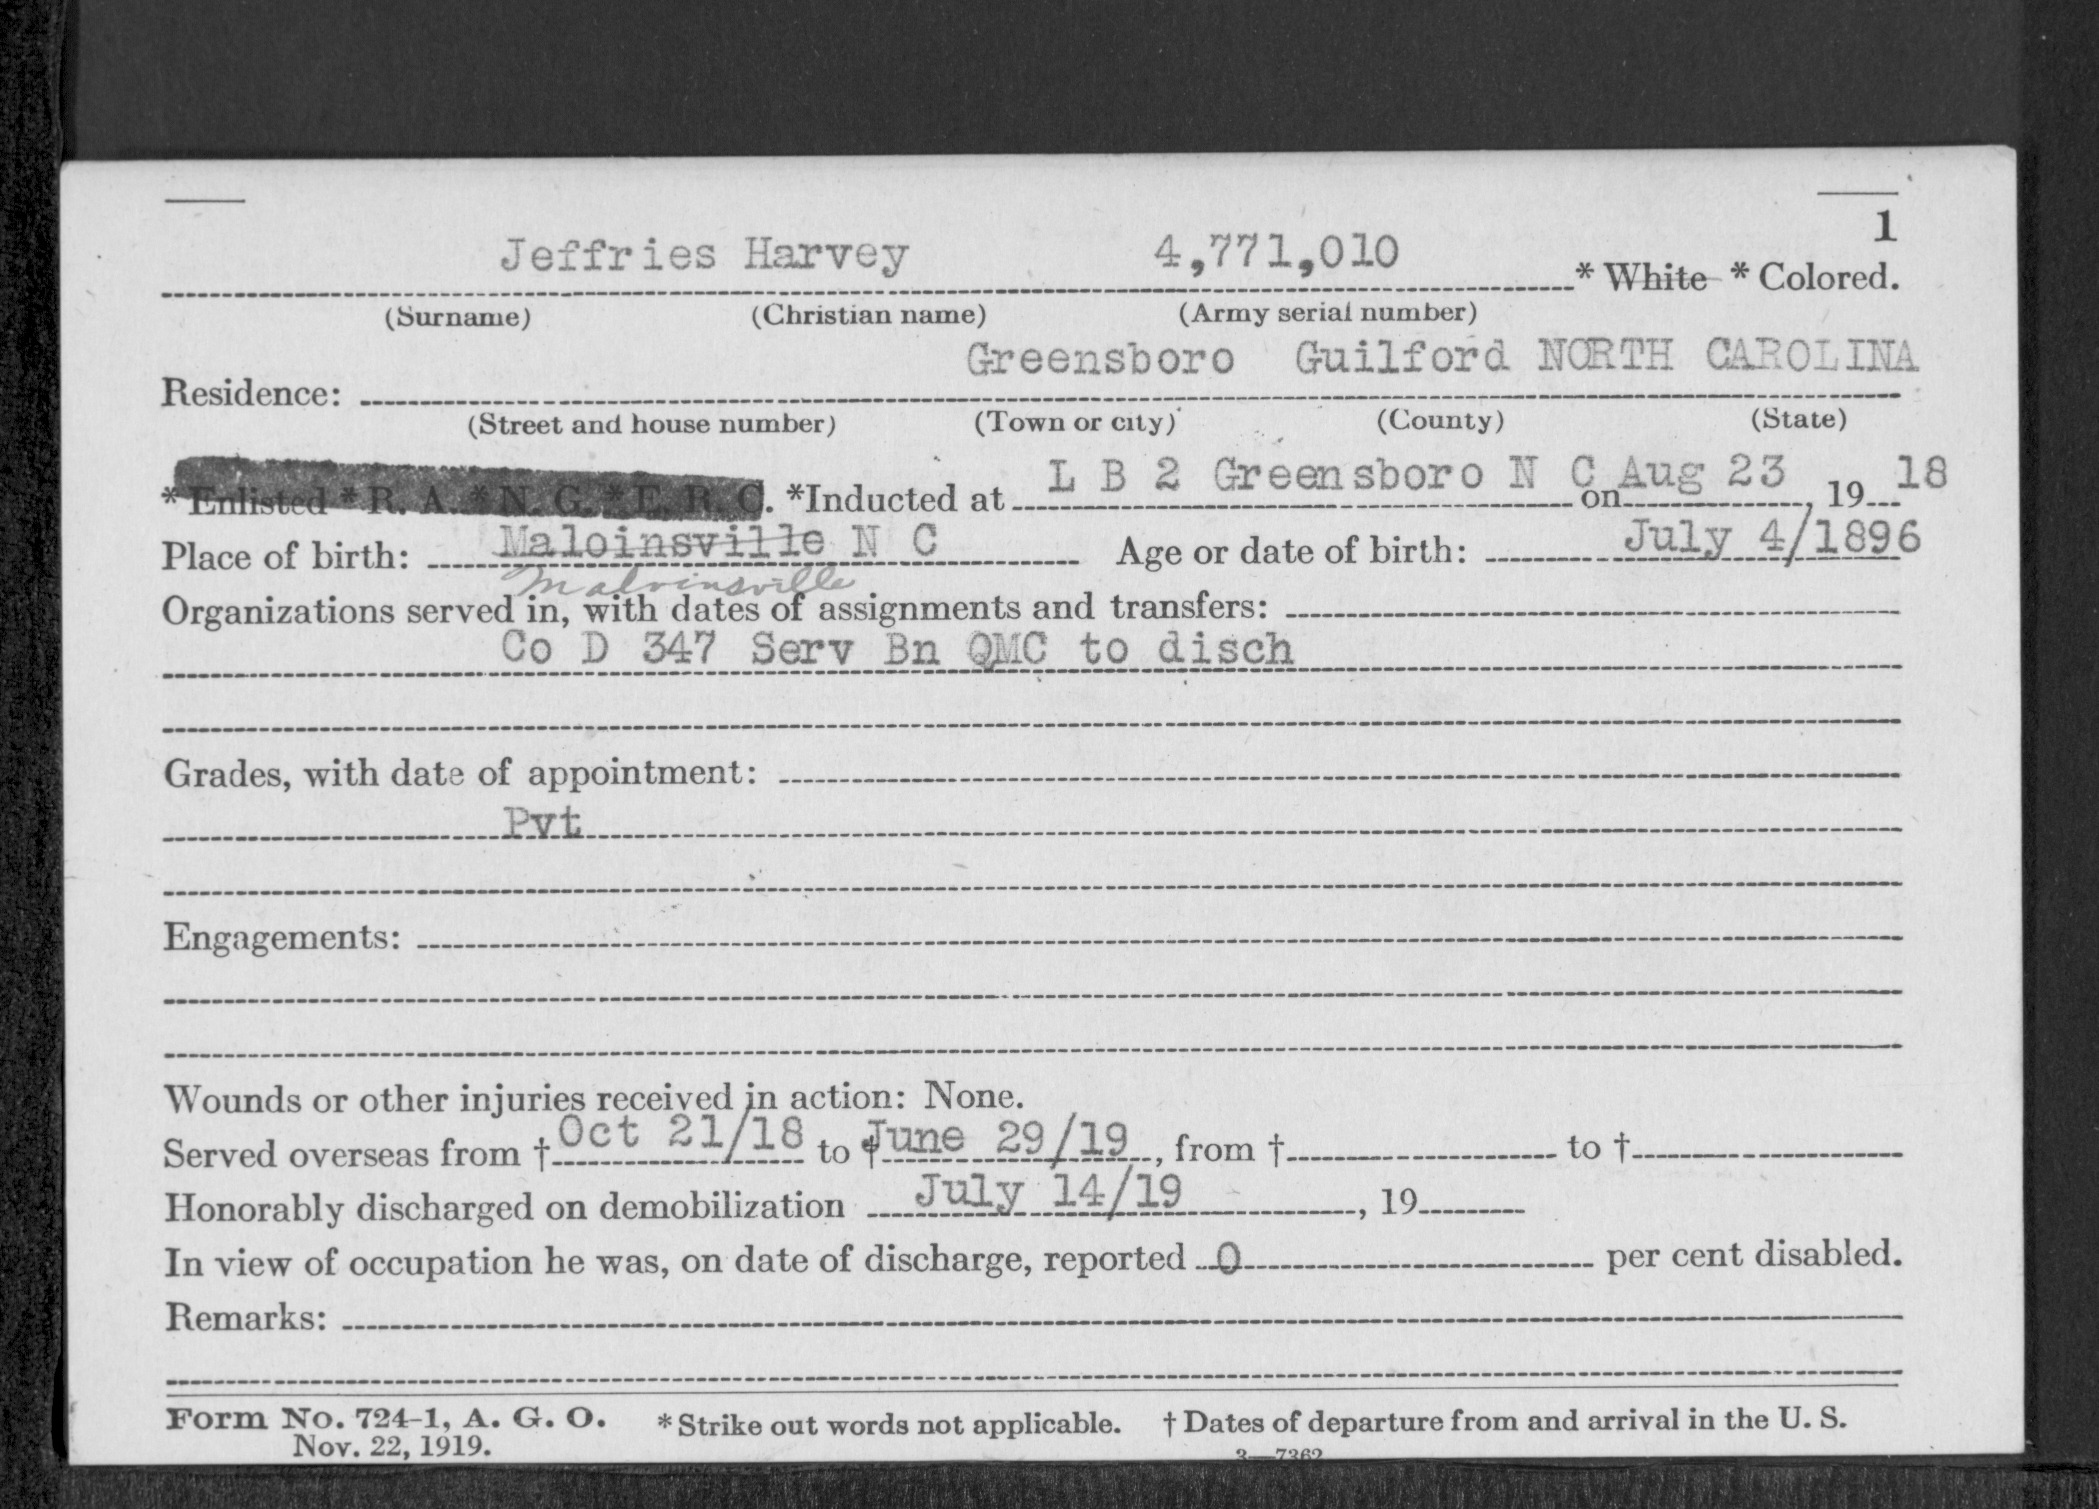 1
Jeffries Harvey 4,771,010 * White * Colored.
(Surname) (Christian name) (Army serial number)
Greensboro Guilford NORTH CAROLINA
Residence:
(Street and house number) (Town or city) (County) (State)
* Enlisted * R. A. * N. G. * E. R. C. *Inducted at L B 2 Greensboro N C on Aug 23, 19 18
Place of birth: Maloinsville N C Age or date of birth: July 4/1896
Malvinsville
Organizations served in, with dates of assignments and transfers:
Co D 347 Serv Bn QMC to disch
Grades, with date of appointment:
Pvt
Engagements:
Wounds or other injuries received in action: None.
Served overseas from † Oct 21/18 to † June 29/19, from † to †
Honorably discharged on demobilization July 14/19, 19
In view of occupation he was, on date of discharge, reported 0 per cent disabled.
Remarks:
Form No. 724-1, A. G. O. * Strike out words not applicable. † Dates of departure from and arrival in the U. S.
Nov. 22, 1919. 3—7362